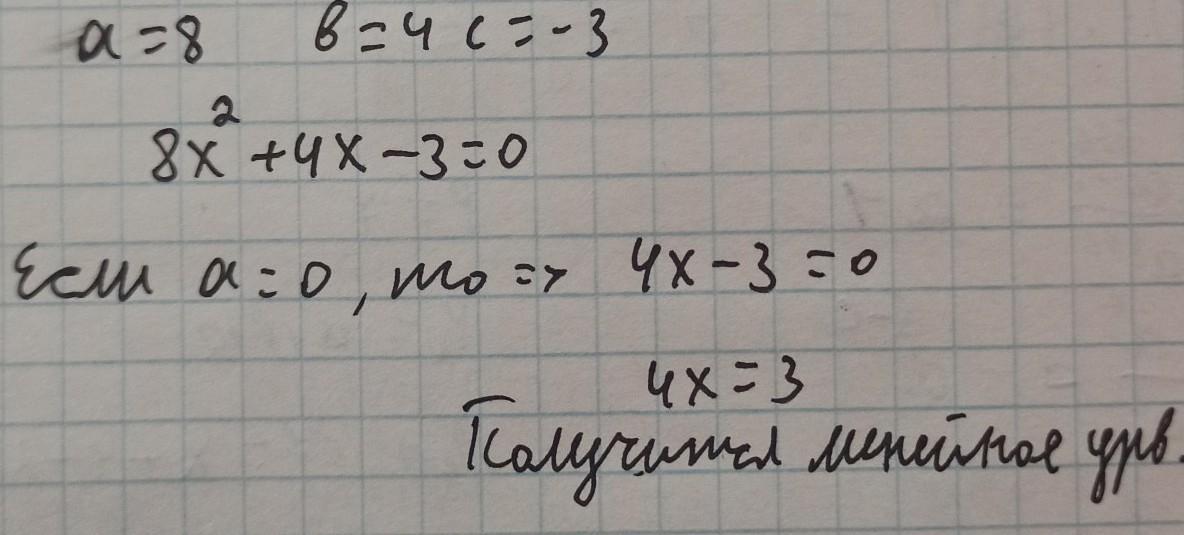 a = 8 в = 4 c = -3
8x² + 4x - 3 = 0
Если a = 0, то => 4x - 3 = 0
4x = 3
Получится линейное урв.